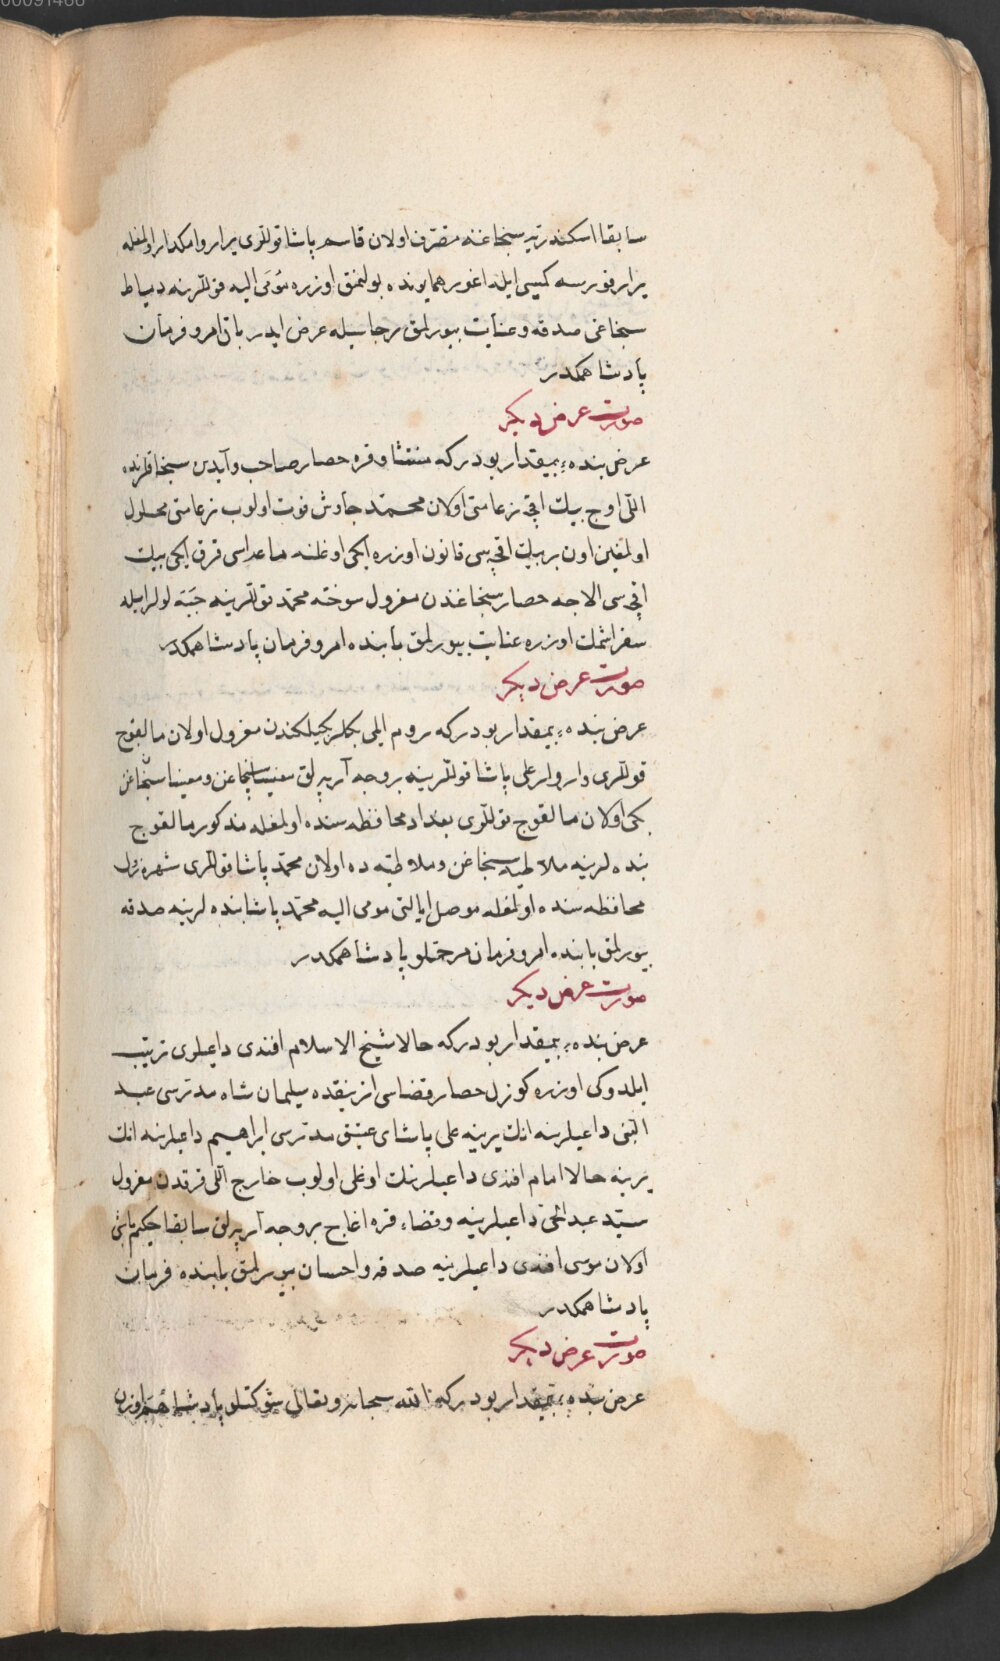 00091466
سابقا اسكندریه سنجاغنه متصرف اولان قاسم پاشا قوللری یرار و امكدار اولمغله
یرار فورسه كیسی ایله اغور همایونده بولنمق اوزره مومی الیه قوللرینه دمیاط
سنجاغی صدقه و عنایت بیورلمق رجاسیله عرض ایدر باقی امر و فرمان
پادشاهمكدر
صورت عرض دیكر
عرض بندهٔ بیمقدار بودركه منتشا و قره حصار صاحب و آیدین سنجاقلرنده
اللی اوچ بیك اقچه زعامتی اولان محمد چاوش فوت اولوب زعامتی محلول
اولمغین اون بر بیك اقچه سی قانون اوزره ایكی اوغلنه ماعداسی قرق ایكی بیك
اقچه سی الاجه حصار سنجاغندن معزول سوخته محمد قوللرینه جبه لولر ایله
سفر اشمك اوزره عنایت بیورلمق بابنده امر و فرمان پادشاهمكدر
صورت عرض دیكر
عرض بندهٔ بیمقدار بودركه روم ایلی بكلربكیلكندن معزول اولان مالقوج
قوللری وار ولر علی پاشا قوللرینه بروجه آرپه لق مغنیسا سنجاغن و مغنیسا سنجاغن
بكی اولان مالقوج قوللری بغداد محافظه سنده اولمغله مذكور مالقوج
بنده لرینه ملاطیه سنجاغن و ملاطیه ده اولان محمد پاشا قوللری شهره زول
محافظه سنده اولمغله موصل ایالتی مومی الیه محمد پاشا بنده لرینه صدقه
بیورلمق بابنده امر و فرمان مرحمتلو پادشاهمكدر
صورت عرض دیكر
عرض بندهٔ بیمقدار بودركه حالا شیخ الاسلام افندی داعیلری ترتیب
ایلدوكی اوزره كوزل حصار قضاسی ازنیقده سلیمان شاه مدرسی عبد
الغنی داعیلرینه انك یرینه علی پاشای عتیق مدرسی ابراهیم داعیلرینه انك
یرینه حالا امام افندی داعیلرینك اوغلی اولوب خارج اللی قرقدن معزول
سید عبد الحی داعیلرینه و قضاء قره اغاج بروجه آرپه لق سابقا حكیم باشی
اولان موسی افندی داعیلرینه صدقه و احسان بیورلمق بابنده فرمان
پادشاهمكدر
صورت عرض دیكر
عرض بندهٔ بیمقدار بودركه الله سبحانه و تعالی شوكتلو پادشاهم